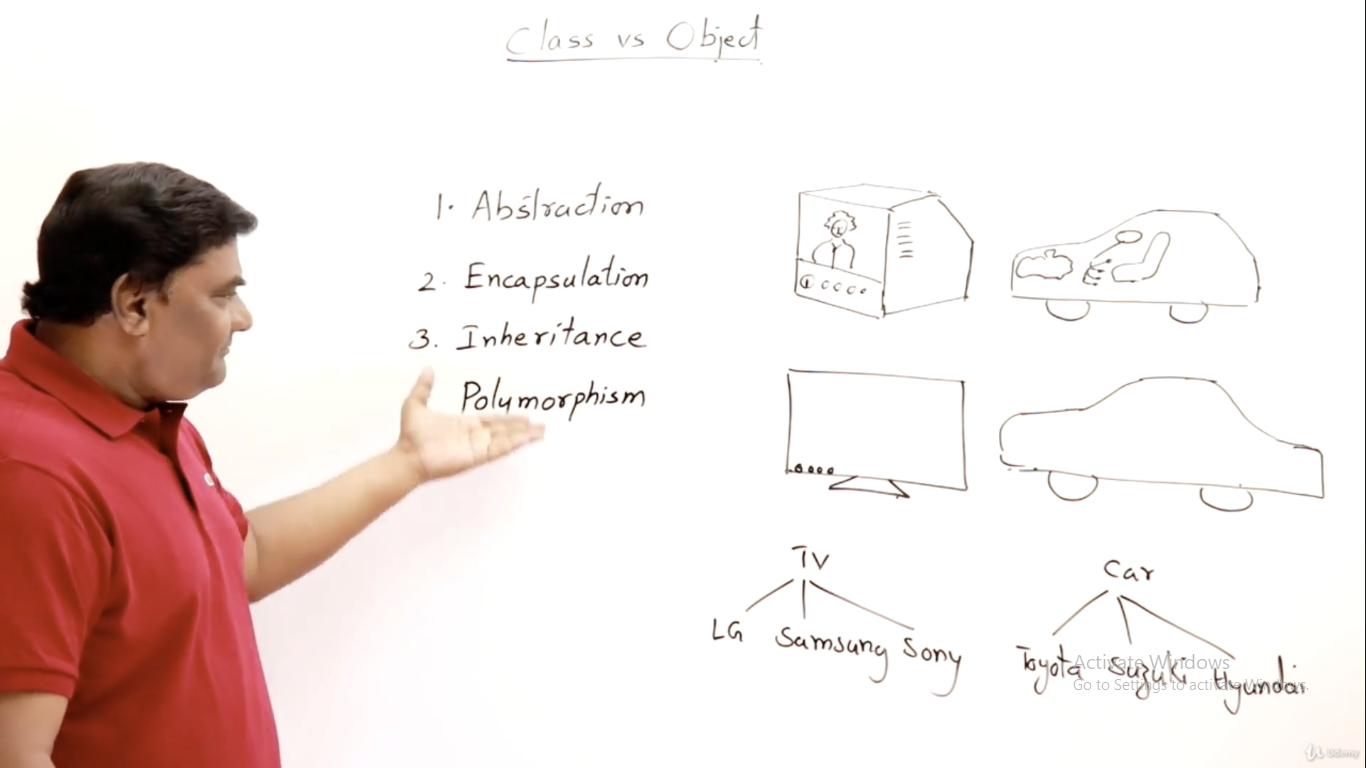 Class vs Object
1. Abstraction
2. Encapsulation
3. Inheritance
Polymorphism
TV
LG Samsung Sony
Car
Toyota Suzuki Hyundai
Activate Windows
Go to Settings to activate Windows.
Udemy